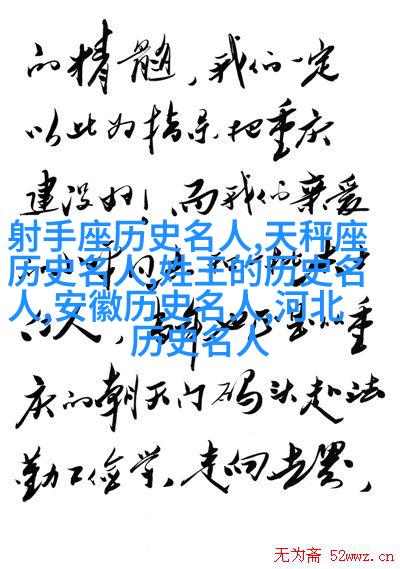 的精髓，我们一定
以此为指导把重庆
建设好！而我们亲爱
射手座历史名人,天秤座
历史名人,姓王的历史名
人,安徽历史名人,河北
历史名人
的人，当年也正是从重
庆的朝天门码头赴法
勤工俭学，走向世界，
无为斋 52wwz.cn